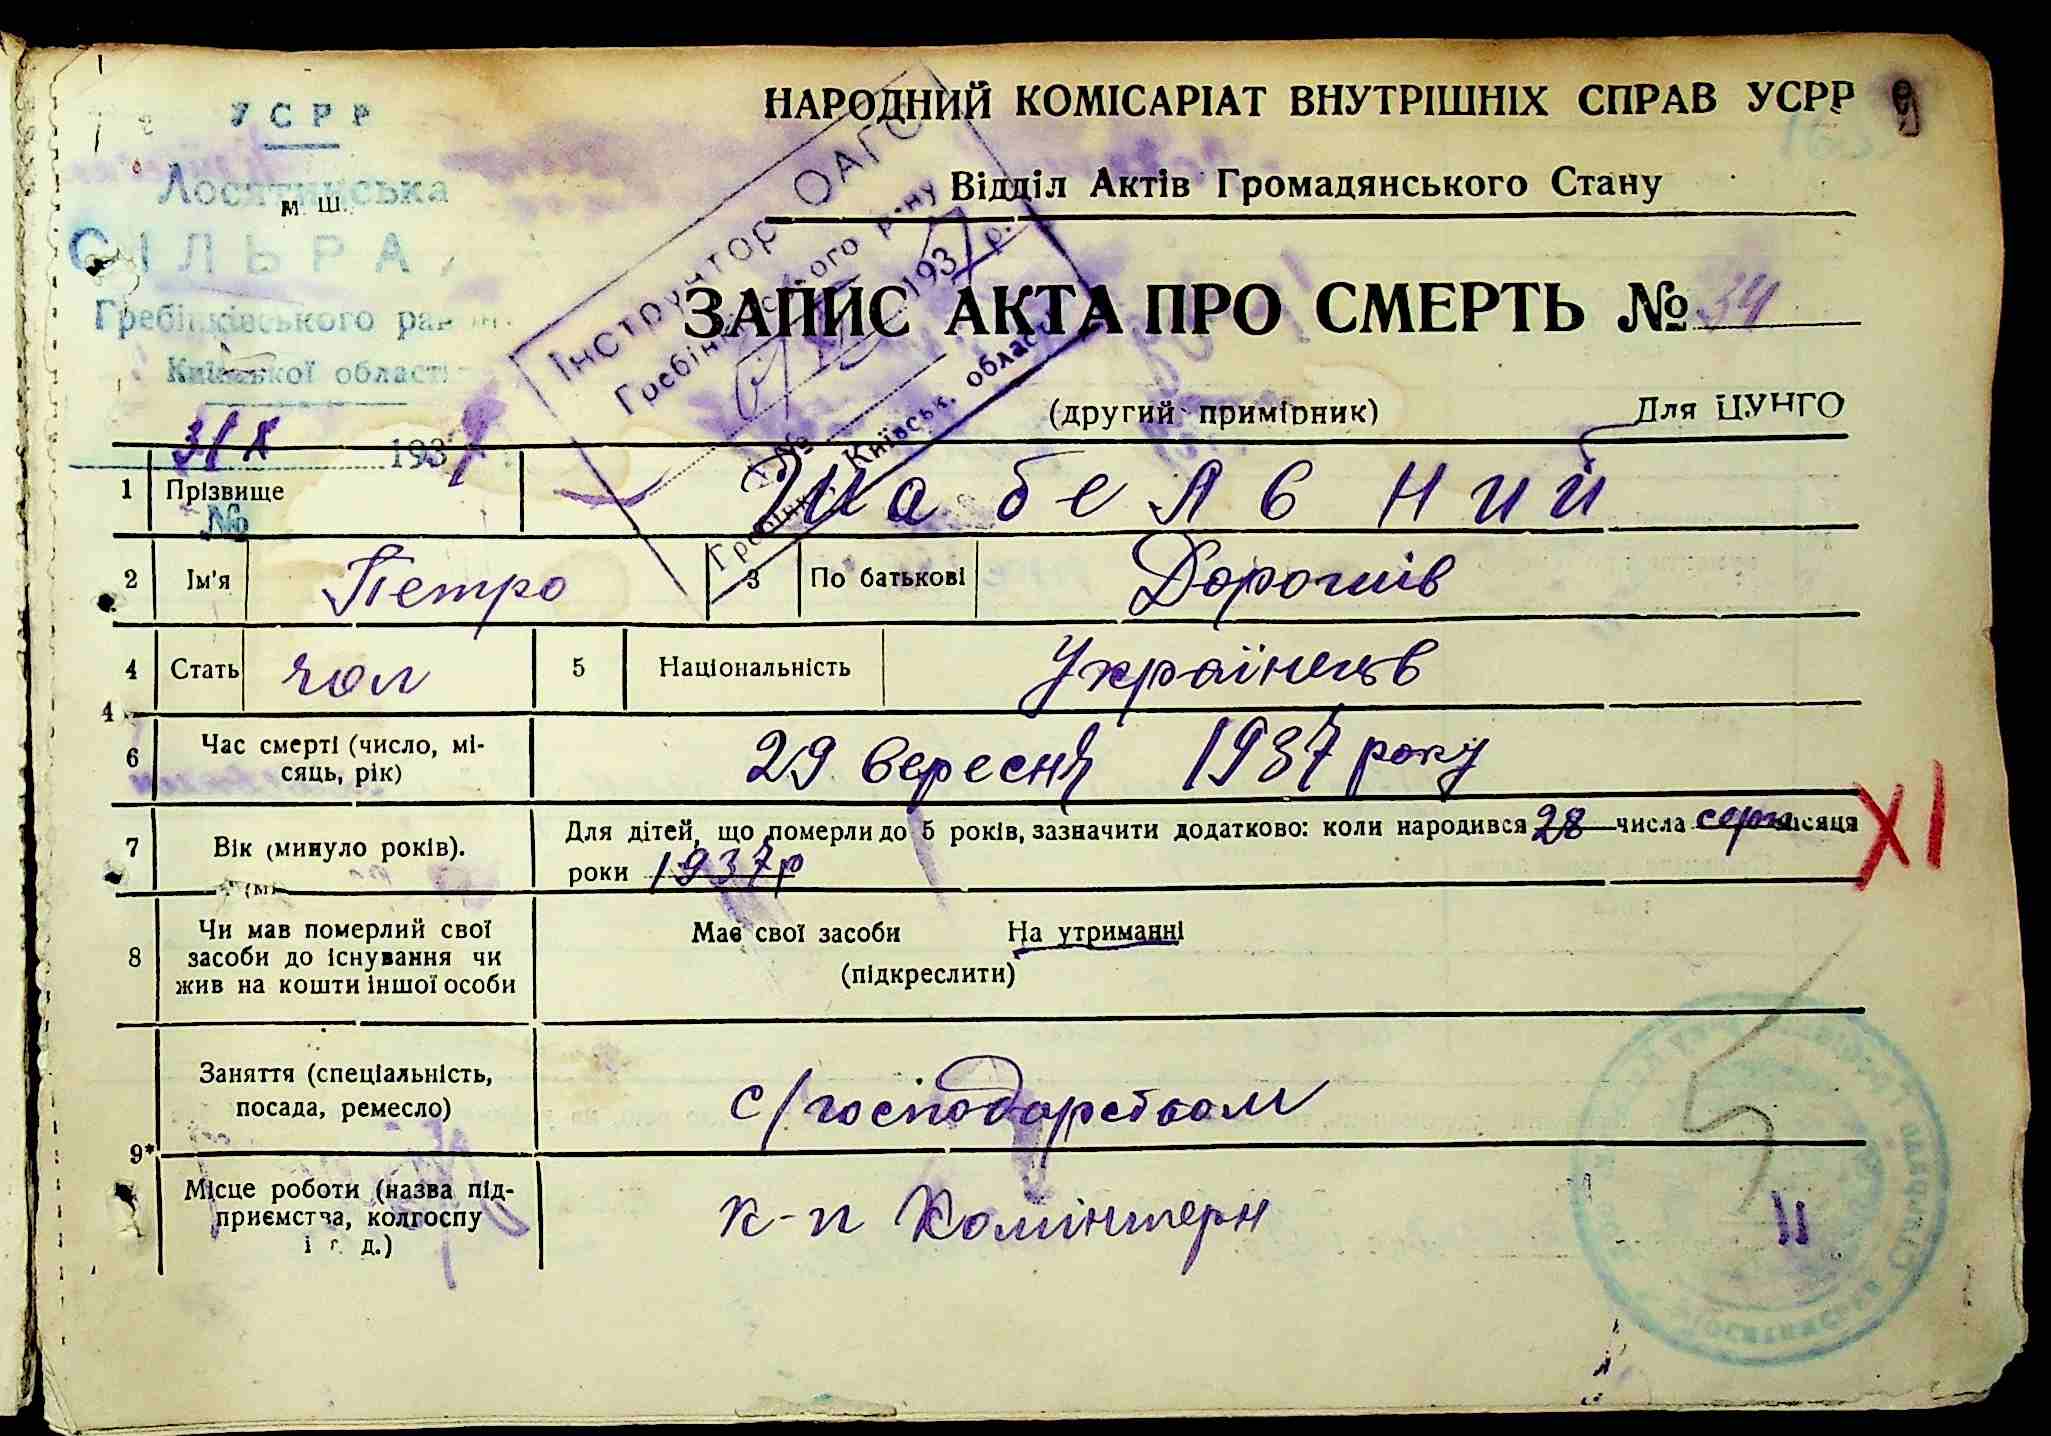 УСРР
НАРОДНИЙ КОМІСАРІАТ ВНУТРІШНІХ СПРАВ УСРР
Відділ Актів Громадянського Стану
Лосятинська
м. ш.
СІЛЬРАДА
Гребінківського району
Київської області
Інструктор ОАГС
Гребінківського р-ну
1937 р.
№
Київськ. області
ЗАПИС АКТА ПРО СМЕРТЬ № 34
(другий примірник)
Для ЦУНГО
3/X 1937
1 Прізвище Шабельний
№
2 Ім'я Петро 3 По батькові Дорошів
4 Стать чол 5 Національність Українець
4
6 Час смерті (число, мі-
сяць, рік) 29 вересня 1937 року
7 Вік (минуло років). Для дітей, що померли до 5 років, зазначити додатково: коли народився 28 числа серп місяця
роки 1937 р
XI
8 Чи мав померлий свої
засоби до існування чи
жив на кошти іншої особи
Має свої засоби На утриманні
(підкреслити)
Заняття (спеціальність,
посада, ремесло) с/господарством
9*
Місце роботи (назва під-
приємства, колгоспу
і т. д.) к-п Комінтерн
5
11